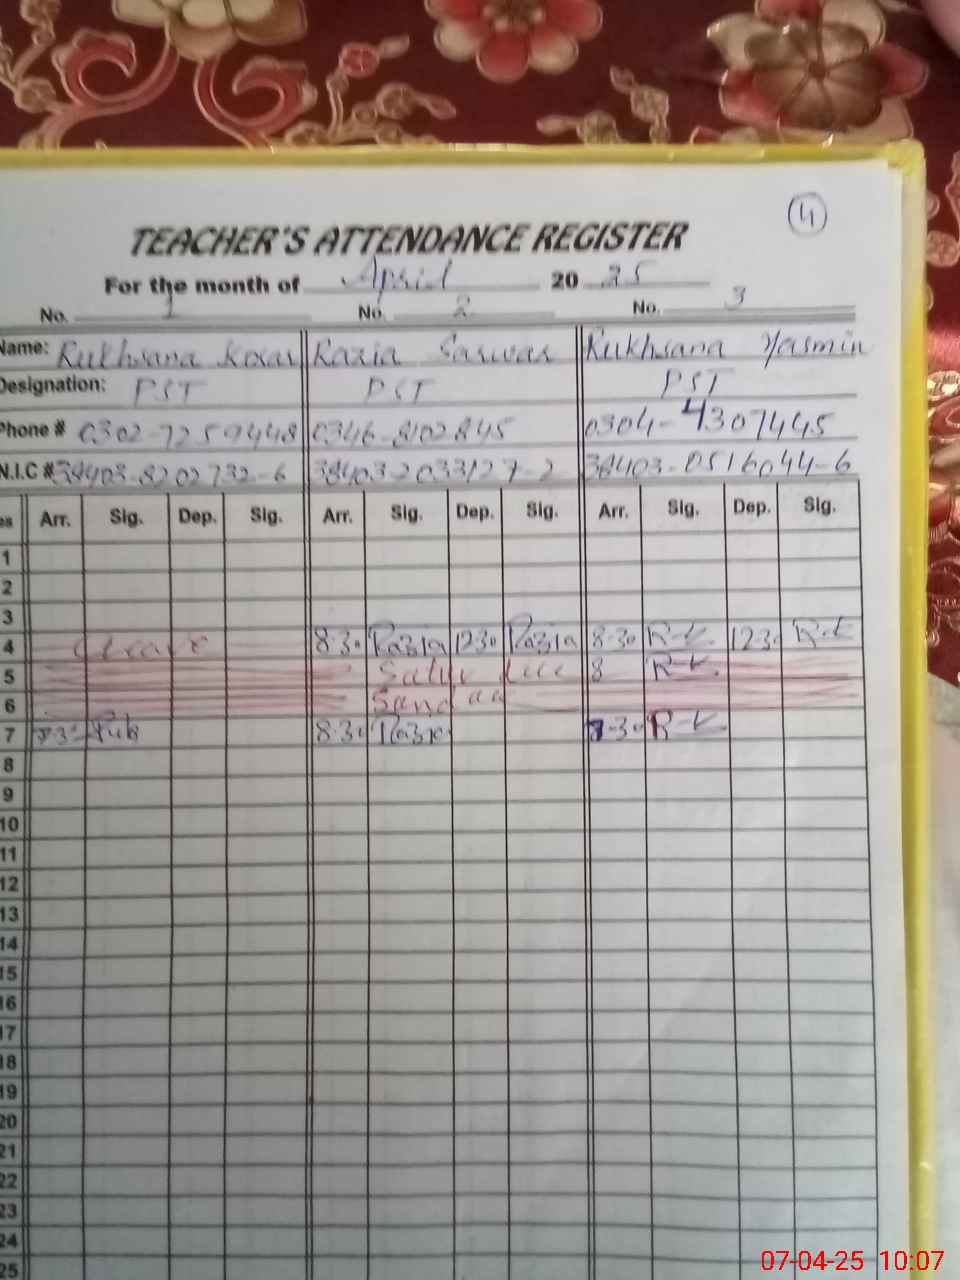 4
TEACHER'S ATTENDANCE REGISTER
For the month of April 20 25
No. 1 No. 2 No. 3
Name: Rukhsana Kosar Razia Sarwar Rukhsana Yasmin
Designation: PST PST PST
Phone # 0302-7259448 0346-8102845 0304-4307445
N.I.C # 38403-8202732-6 38403-2033127-2 38403-0516044-6
es Arr. Sig. Dep. Sig. Arr. Sig. Dep. Sig. Arr. Sig. Dep. Sig.
1
2
3
4 Cleave 8:30 Razia 1230 Razia 8-30 R-K 1230 R-K
5 8 R-K
6 Sunday
7 8:30 Razia 30 R-K
8
9
10
11
12
13
14
15
16
17
18
19
20
21
22
23
24
25
07-04-25 10:07